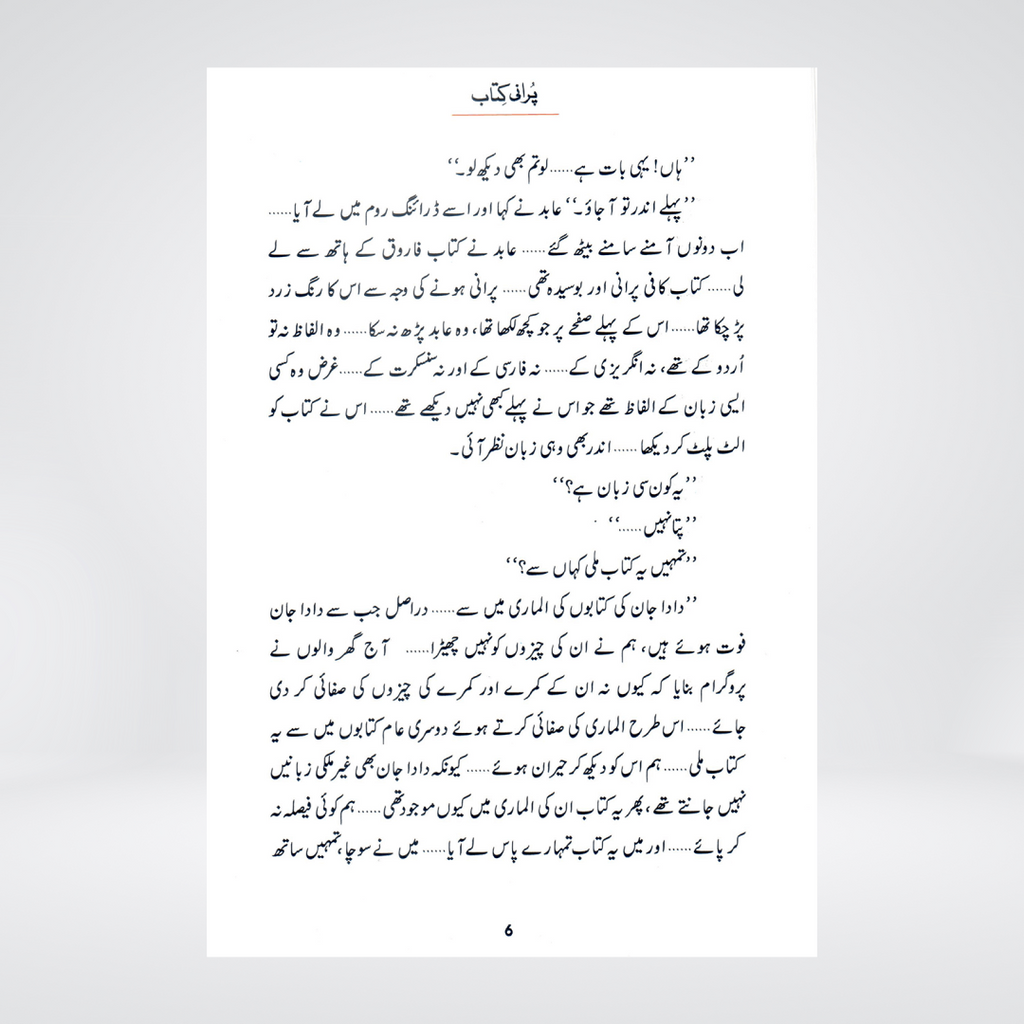 پُرانی کِتاب
’’ہاں! یہی بات ہے...... لو تم بھی دیکھ لو۔‘‘
’’پہلے اندر تو آ جاؤ۔‘‘ عابد نے کہا اور اسے ڈرائنگ روم میں لے آیا......
اب دونوں آمنے سامنے بیٹھ گئے...... عابد نے کتاب فاروق کے ہاتھ سے لے
لی...... کتاب کافی پرانی اور بوسیدہ تھی...... پرانی ہونے کی وجہ سے اس کا رنگ زرد
پڑ چکا تھا...... اس کے پہلے صفحے پر جو کچھ لکھا تھا، وہ عابد پڑھ نہ سکا...... وہ الفاظ نہ تو
اُردو کے تھے، نہ انگریزی کے...... نہ فارسی کے اور نہ سنسکرت کے......غرض وہ کسی
ایسی زبان کے الفاظ تھے جو اس نے پہلے کبھی نہیں دیکھے تھے...... اس نے کتاب کو
الٹ پلٹ کر دیکھا...... اندر بھی وہی زبان نظر آئی۔
’’یہ کون سی زبان ہے؟‘‘
’’پتا نہیں......‘‘
’’تمہیں یہ کتاب ملی کہاں سے؟‘‘
’’دادا جان کی کتابوں کی الماری میں سے...... دراصل جب سے دادا جان
فوت ہوئے ہیں، ہم نے ان کی چیزوں کو نہیں چھیڑا...... آج گھر والوں نے
پروگرام بنایا کہ کیوں نہ ان کے کمرے اور کمرے کی چیزوں کی صفائی کر دی
جائے...... اس طرح الماری کی صفائی کرتے ہوئے دوسری عام کتابوں میں سے یہ
کتاب ملی...... ہم اس کو دیکھ کر حیران ہوئے...... کیونکہ دادا جان بھی غیر ملکی زبانیں
نہیں جانتے تھے، پھر یہ کتاب ان کی الماری میں کیوں موجود تھی...... ہم کوئی فیصلہ نہ
کر پائے...... اور میں یہ کتاب تمہارے پاس لے آیا...... میں نے سوچا، تمہیں ساتھ
6